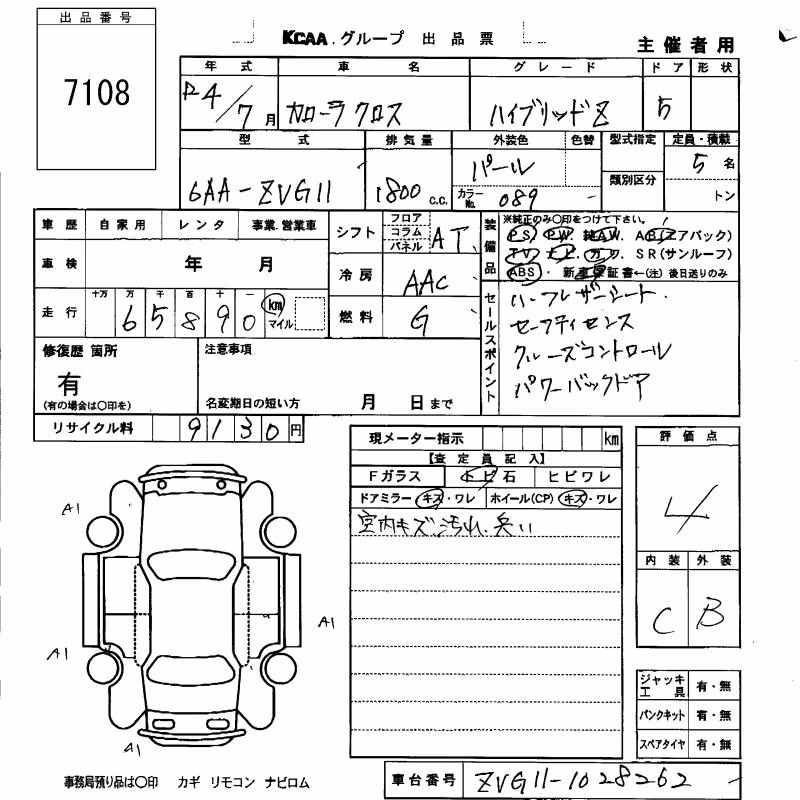 出品番号
7108
KCAA.グループ 出品票
主催者用
年式 車名 グレード ドア 形状
R4/7月 カローラクロス ハイブリッドZ 5
型式 排気量 外装色 色替 型式指定 定員・積載
6AA-ZVG11 1800 c.c. パール 類別区分 5名
カラーNo. 089 - トン
車歴 自家用 レンタ 事業.営業車
シフト フロア コラム パネル AT
車検 年 月
冷房 AAC
走行 十万 万 千 百 十 一 km マイル
65890
燃料 G
装備品
※純正のみ〇印をつけて下さい。
PS. PW. 純AW. AB(エアバック)
TV. ナビ. カワ. SR(サンルーフ)
ABS. 新車保証書←(注)後日送りのみ
セールスポイント
ハーフレザーシート.
セーフティセンス
クルーズコントロール
パワーバックドア
修復歴 箇所
有
(有の場合は〇印を)
注意事項
名変期日の短い方 月 日まで
リサイクル料 9130円
現メーター指示 km
【査定員記入】
Fガラス トビ石 ヒビワレ
ドアミラー キズ・ワレ ホイール(CP) キズ・ワレ
室内キズ.汚れ.臭い
評価点
4
内装 外装
C B
A1
A1
A1
A1
ジャッキ工具 有・無
パンクキット 有・無
スペアタイヤ 有・無
事務局預り品は〇印 カギ リモコン ナビロム
車台番号 ZVG11-1028262 -